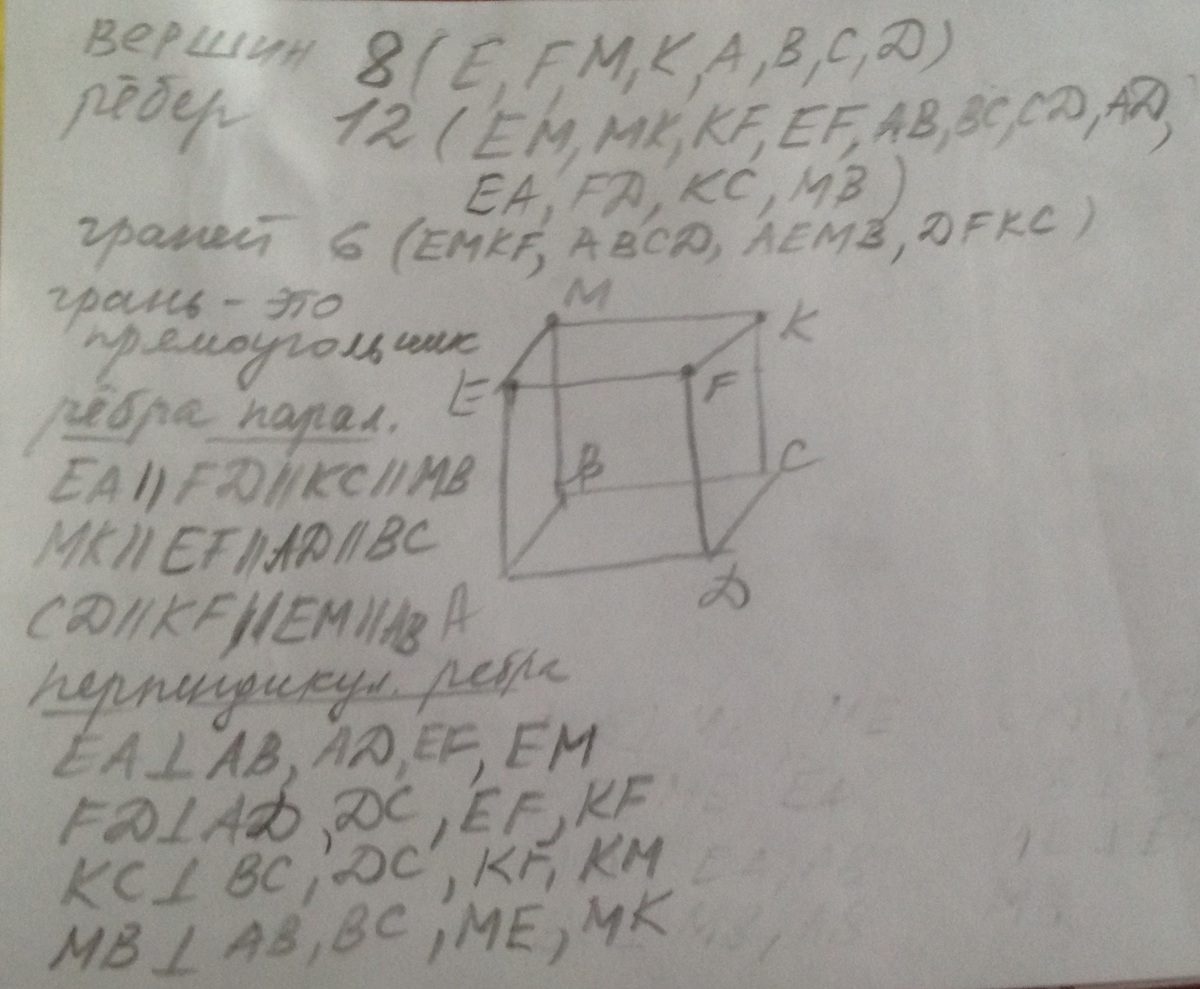 вершин 8 (E, F, M, K, A, B, C, D)
рёбер 12 (EM, MK, KF, EF, AB, BC, CD, AD,
EA, FD, KC, MB)
граней 6 (EMKF, ABCD, AEMB, DFKC)
грань - это
прямоугольник
M
K
E
F
рёбра парал.
B
C
EA || FD || KC || MB
MK || EF || AD || BC
D
CD || KF || EM || AB
A
перпендикул. ребра
EA ⊥ AB, AD, EF, EM
FD ⊥ AD, DC, EF, KF
KC ⊥ BC, DC, KF, KM
MB ⊥ AB, BC, ME, MK